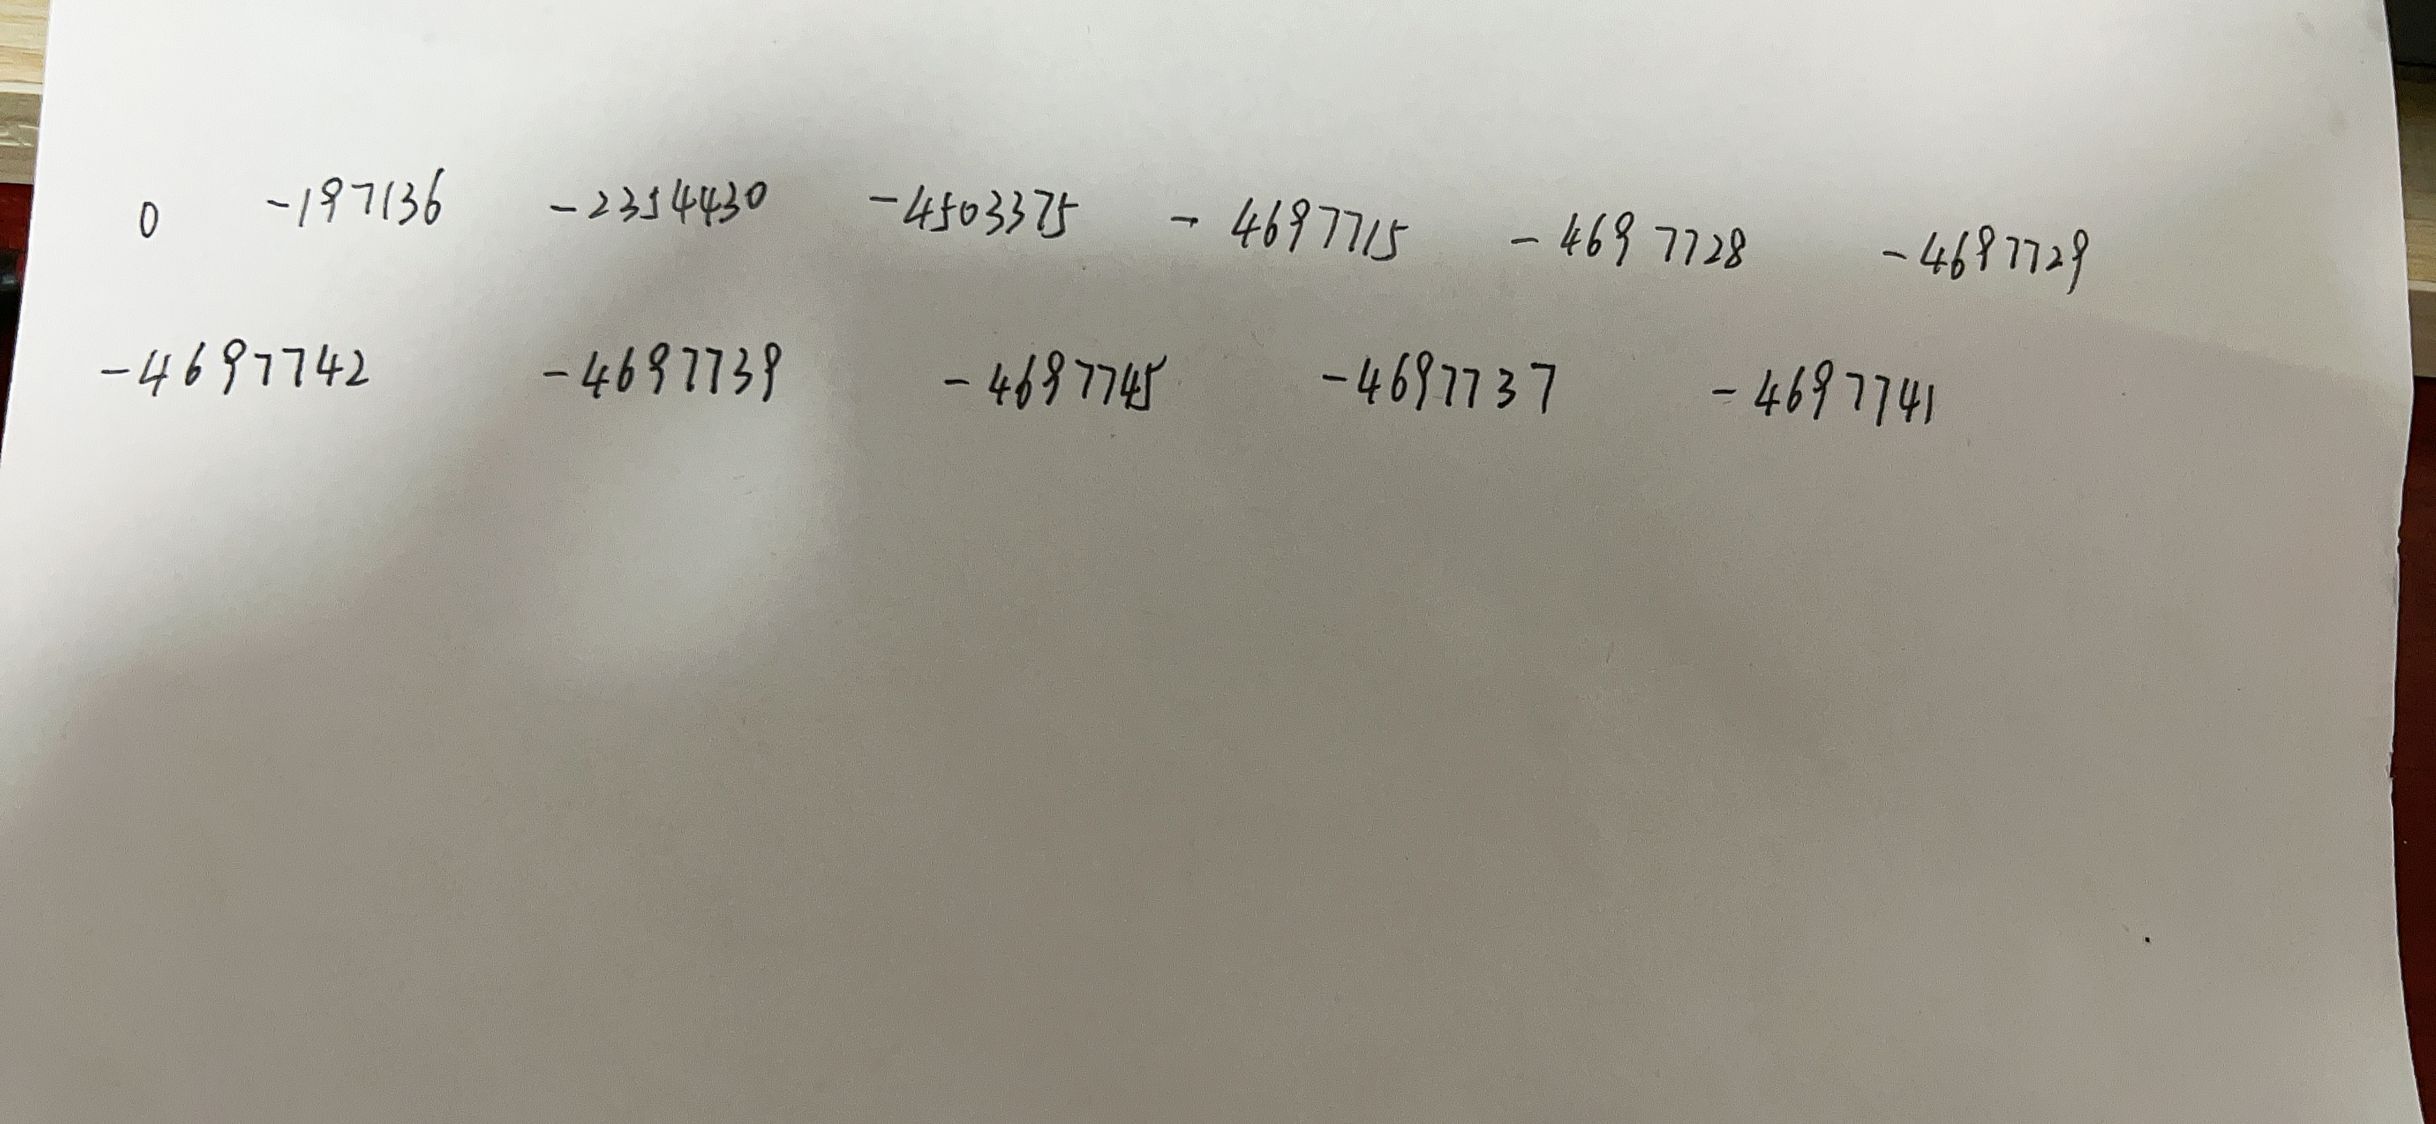 0 -197136 -2354430 -4503375 -4697715 -4697728 -4697729
-4697742 -4697739 -4697745 -4697737 -4697741